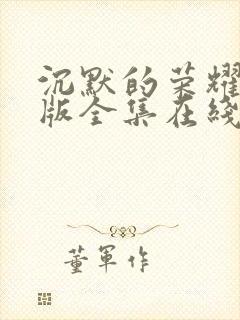 沉默的荣耀
版全集在线
董军作